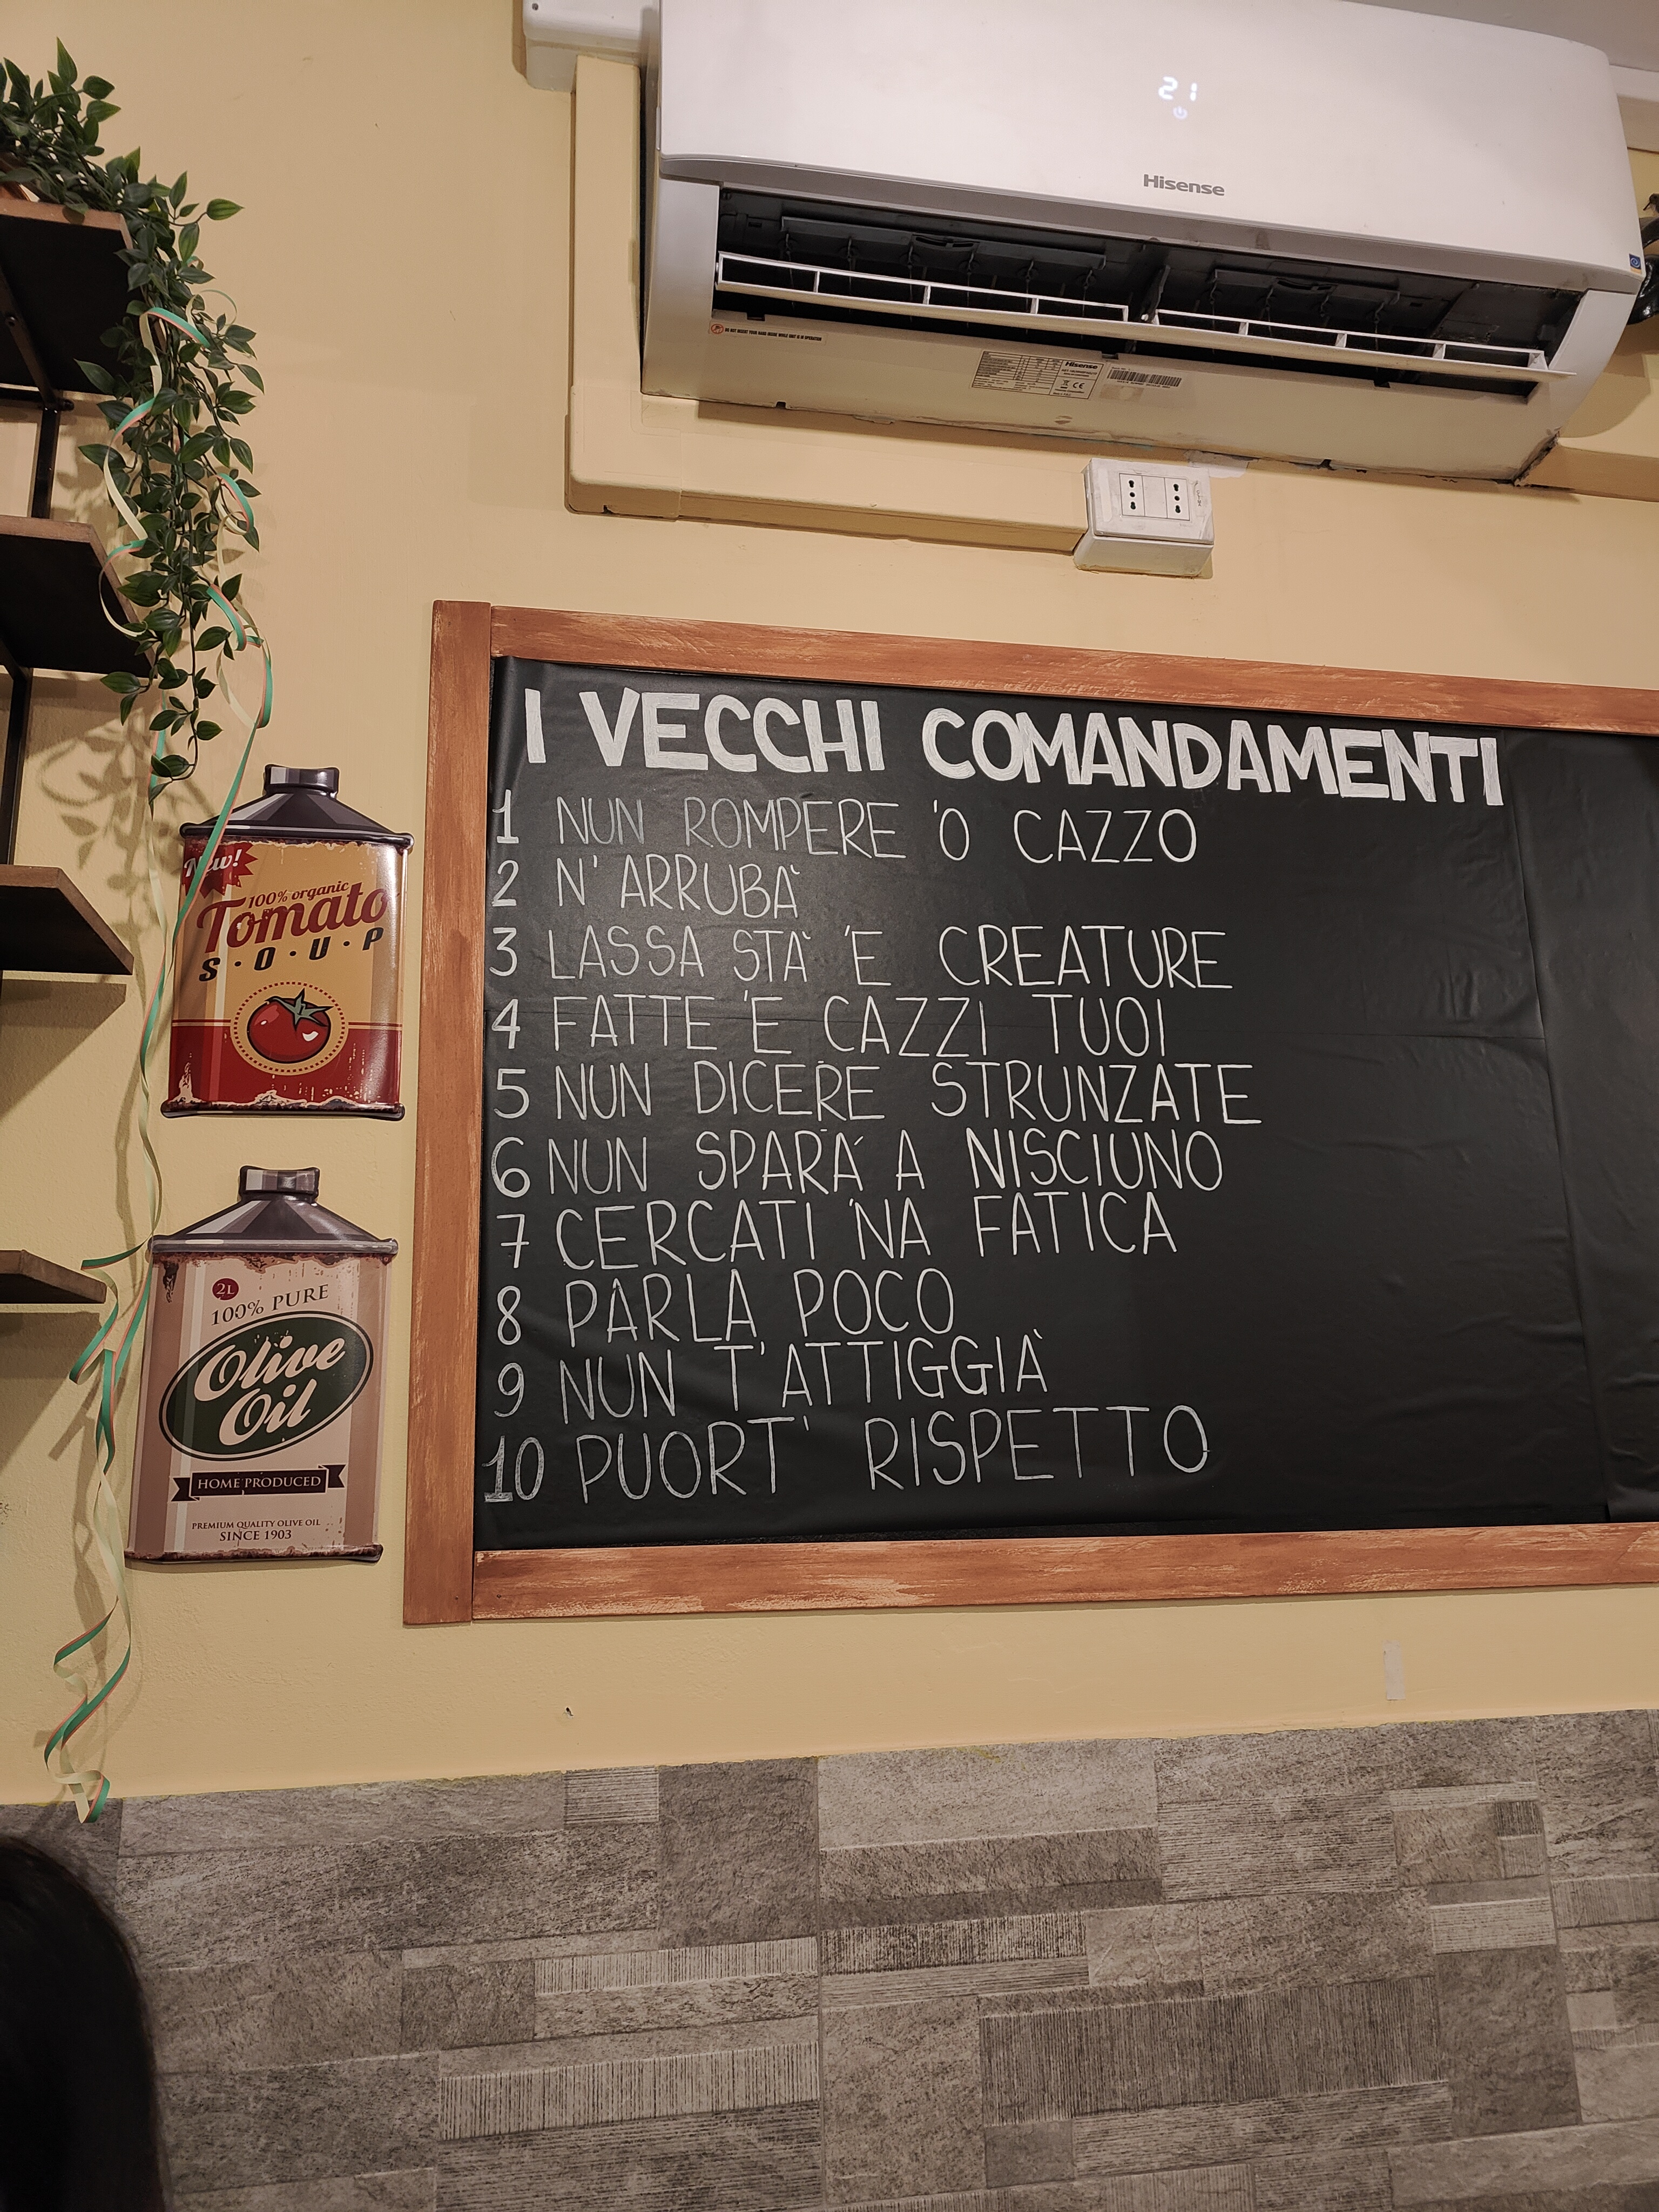 21
Hisense
DO NOT INSERT YOUR HAND INSIDE WHILE UNIT IS IN OPERATION
Hisense
CE
I VECCHI COMANDAMENTI
1 NUN ROMPERE 'O CAZZO
2 N' ARRUBÀ
3 LASSA STÀ 'E CREATURE
4 FATTE 'E CAZZI TUOI
5 NUN DICERE STRUNZATE
6 NUN SPARÁ A NISCIUNO
7 CERCATI 'NA FATICA
8 PARLA POCO
9 NUN T'ATTIGGIÀ
10 PUORT' RISPETTO
New!
100% organic
Tomato
S·O·U·P
2L
100% PURE
Olive
Oil
HOME PRODUCED
PREMIUM QUALITY OLIVE OIL
SINCE 1903